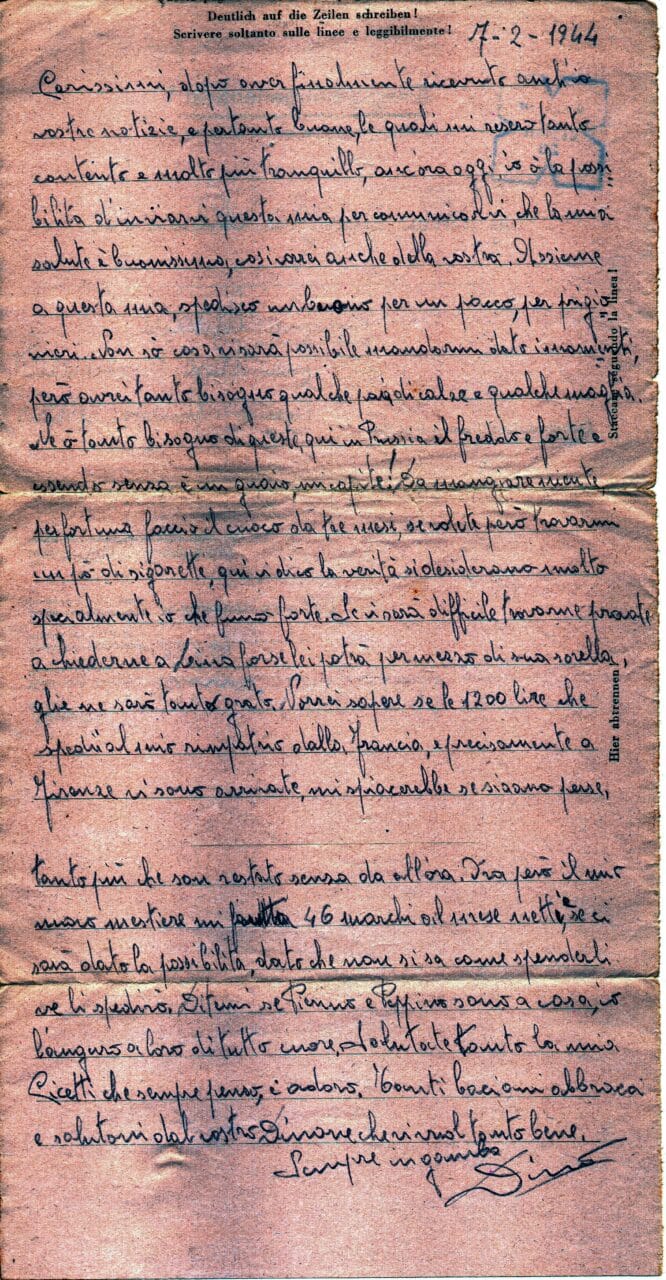 Deutlich auf die Zeilen schreiben!
Scrivere soltanto sulle linee e leggibilmente!
7-2-1944
Carissimi, dopo aver finalmente ricevuto anch'io
vostre notizie, e pertanto buone, le quali mi resero tanto
contento e molto più tranquillo, ancora oggi, io ò la possi
bilita d'inviarvi questa mia per comunicarvi, che la mia
salute è buonissima, così vorrei anche della vostra. Assieme
a questa mia, spedisco un buono per un pacco, per prigio
nieri. Non sò cosa vi sarà possibile mandarmi dato i momenti,
però avrei tanto bisogno qualche paia di calze e qualche maglia.
Ne ò tanto bisogno di queste, qui in Prussia il freddo e forte e
essendo senza è un guaio, mi capite! Da mangiare niente,
per fortuna faccio il cuoco da tre mesi, se volete però trovarmi
un pò di sigarette, qui vi dico la verità si desiderano molto
specialmente io che fumo forte. Se vi sarà difficile trovarne provate
a chiederne a forse lei potrà per mezzo di sua sorella,
glie ne sarò tanto grato. Vorrei sapere se le 1200 lire che
spedii al mio rimpatrio dalla Francia, e precisamente a
Firenze vi sono arrivate, mi spiacerebbe se siano perse,
tanto più che son restato senza da allora. Ora però il mio
nuovo mestiere mi frutta 46 marchi al mese netti, e se ci
sarà dato la possibilità, dato che non si sa come spenderli
ve li spedirò, Ditemi se e Peppino sono a casa, io
l'auguro a loro di tutto cuore. Salutate tanto la mia
che sempre penso, e adoro. Tanti bacioni abbracci
e salutoni dal vostro Dinone che vi vuol tanto bene.
Sempre in gamba
Dino
Staccare seguendo la linea!
Hier abtrennen